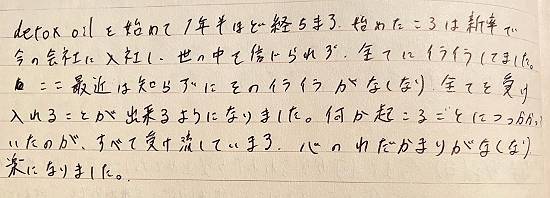 detox oil を始めて1年半ほど経ちます。始めたころは新卒で
今の会社に入社し、世の中を信じられず、全てにイライラしてました。
ここ最近は知らずにそのイライラがなくなり、全てを受け
入れることが出来るようになりました。何か起こるごとにつっかかって
いたのが、すべて受け流しています。心のわだかまりがなくなり
楽になりました。